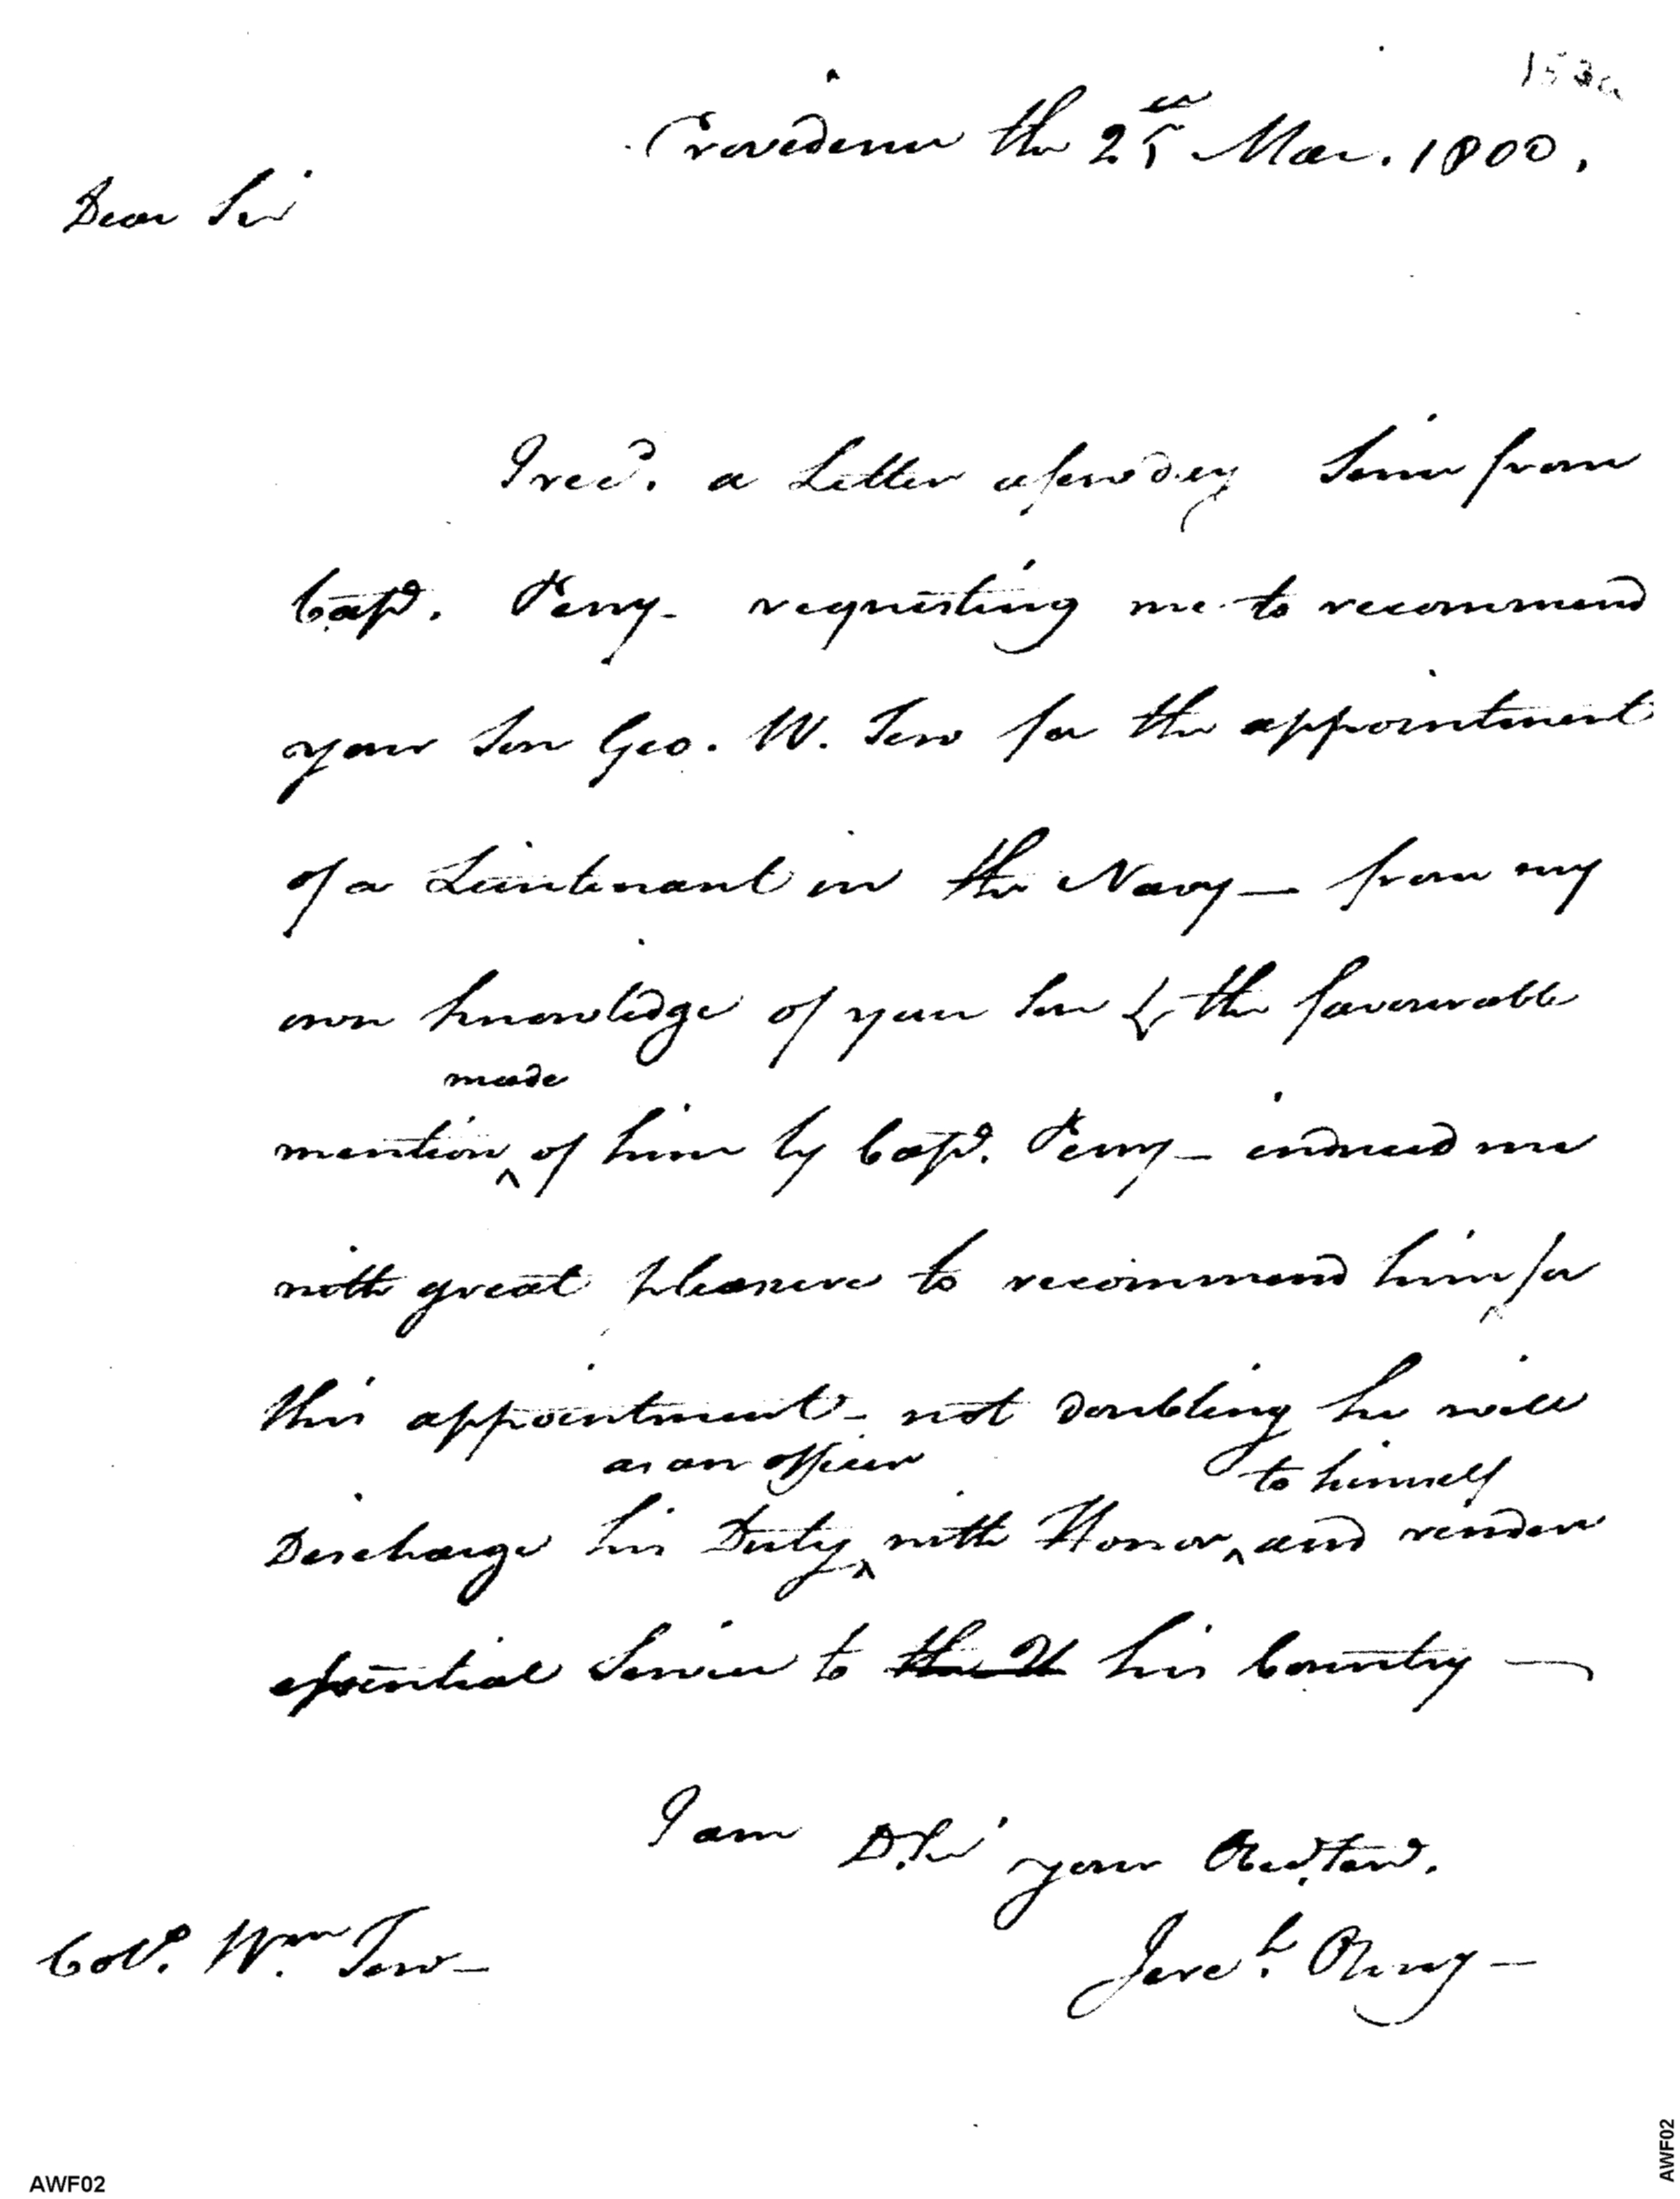 Providence the 25th Mar. 1800.
Dear Sir
I recd. a Letter a few days Since from
Capt. Perry - requesting me to recommend
your Son Geo. W. Tew for the appointment
of a Lieutenant in the Navy — from my
own knowledge of your Son & the favourable
made
mention ^ of him by Capt. Perry - induced me
with great pleasure to recommend him for
this appointment - not doubting he will
as an officer to himself
Discharge his Duty ^ with Honor ^ and render
essential Service to the U his Country —
I am D. Sir your Obed.
Colo. Wm. Tew -
Jereh. Olney -
AWF02
AWF02